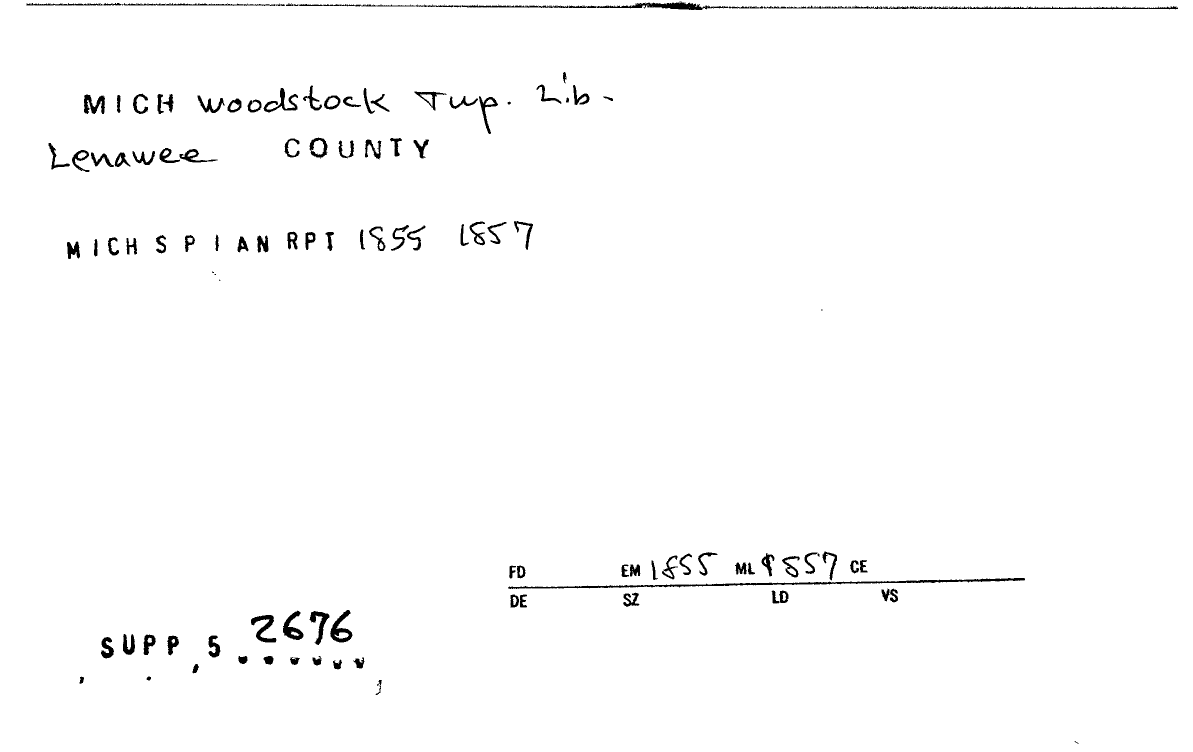 MICH Woodstock Twp. Lib.
Lenawee COUNTY
MICH S P I AN RPT 1855 1857
FD EM 1855 ML 1857 CE
DE SZ LD VS
SUPP, 5 2676